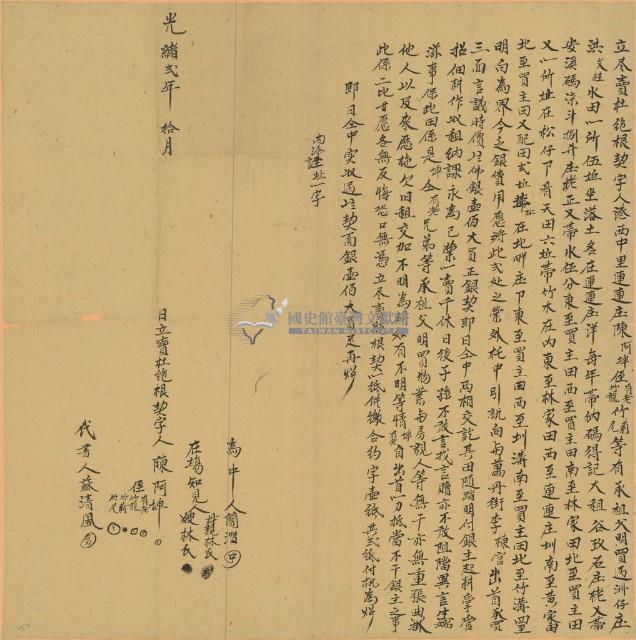 立尽賣杜絕根契字人港西中里連連庄陳阿坤侄有老竹龍竹爿竹尾等有承祖父明買過洲仔庄
洪 水田一所伍坵坐落土名在連連庄洋每年帶納碼得記大租谷 石庄栳又帶
安溪碼柒斗捌升庄栳正又帶水伍分東至買主田西至買主田南至林家田北至買主田
又一所址在松仔下普天田六坵帶竹木在內東至林家田西至連連庄圳南至黃家田
北至買主田又配田弍坵址在北畔庄下東至買主田西至圳溝南至買主田北至竹溝四至
明白為界今乏銀費用愿將此弍處之業外托中引就向與萬丹街李 官出首承買
三面言議時價 佛銀壹佰大員正銀契即日仝中兩相交訖其田隨踏明付銀主起耕掌管
招佃耕作收租納課永為己業一賣千休日後子孫不敢言找言贖亦不敢阻隔異言生端
滋事保此田係是坤仝有老兄弟等承祖父明買物業與房親人等無干亦無重張典掛
他人以及來歷拖欠旧租交加不明為碍如有不明等情坤自出首一力抵當不干銀主之事
此係二比甘愿各無反悔恐口無憑立尽賣 根契一紙併繳合約字壹紙共弍紙付執為炤
即日仝中實收過 契面銀壹佰大員足再炤
內添 址一字
為中人簡潤
在場知見人 林氏
嫂林氏
日立賣杜絕根契字人陳阿坤
侄有老竹龍竹爿竹尾
代書人蘇清風
光緒弍年 拾月
國史館臺灣文獻館
TAIWAN HISTORICA